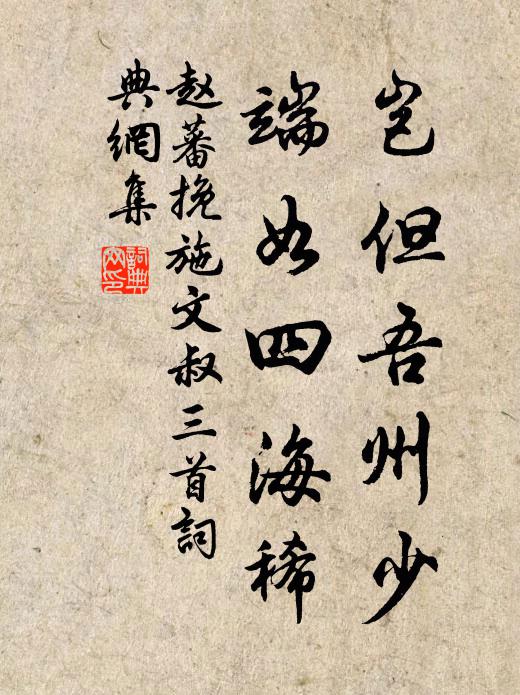 岂但吾州少
端如四海稀
赵蕃挽施文叔三首詞
典網集
詞典网印